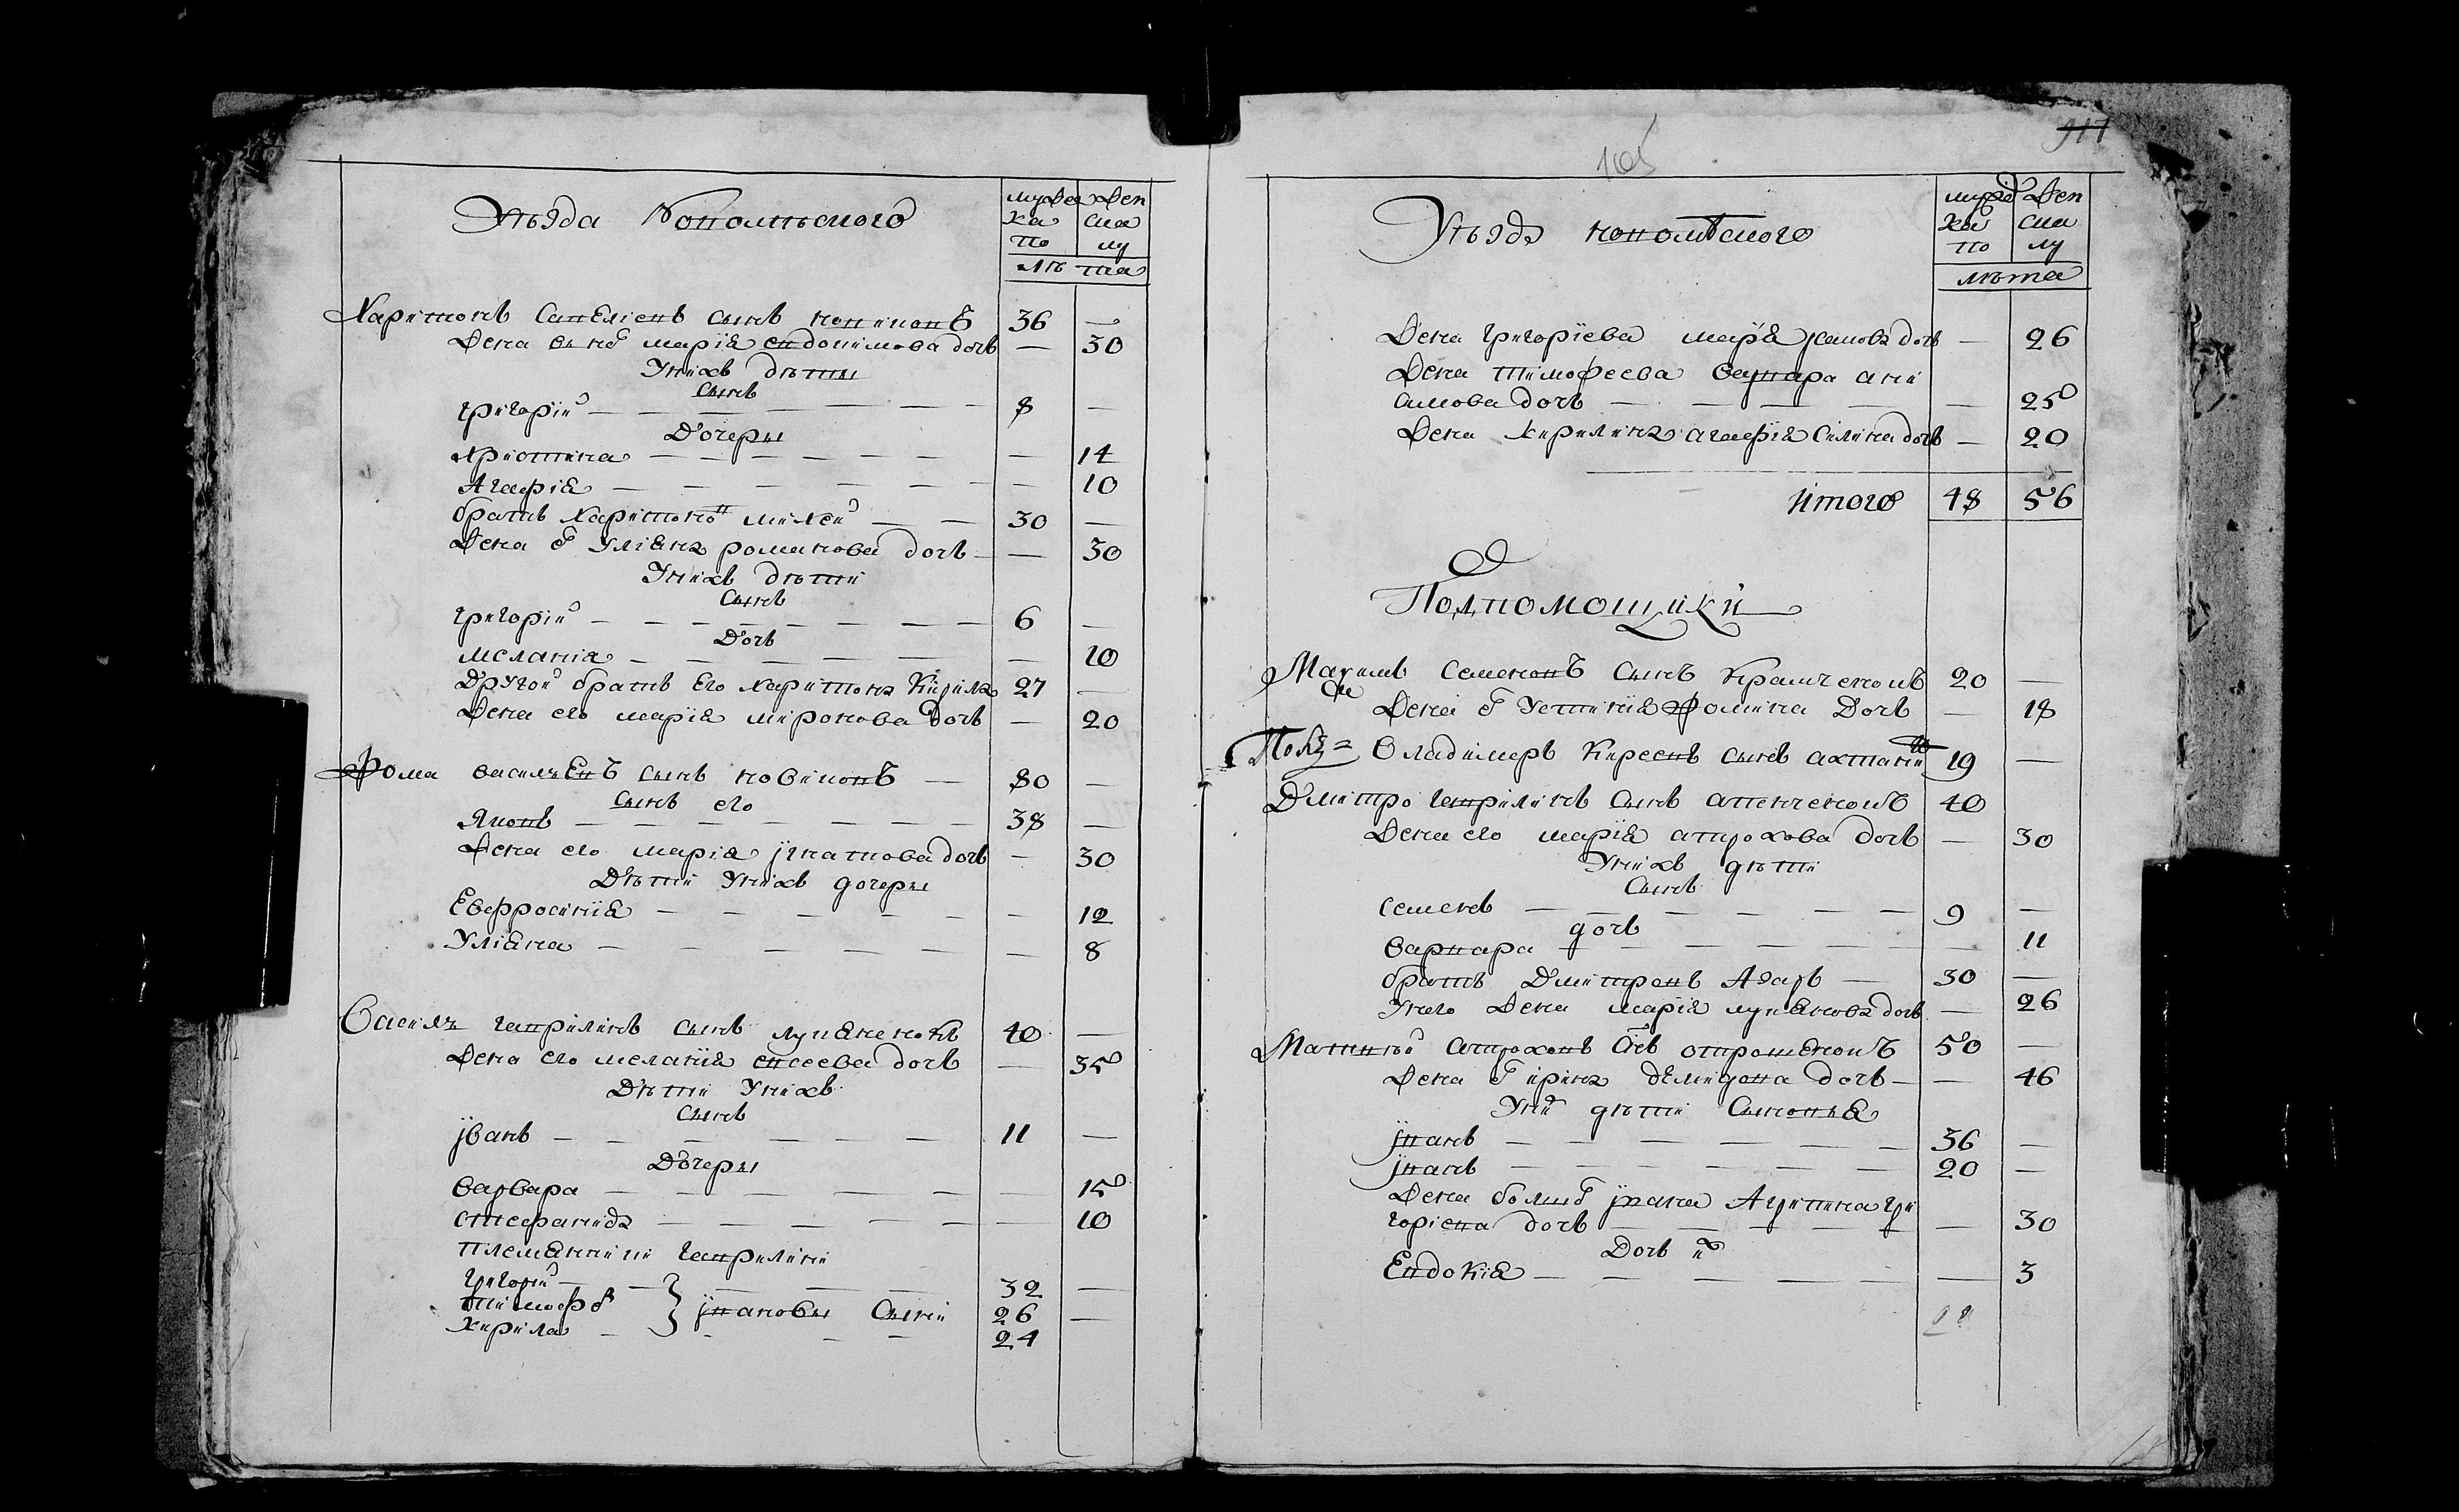 Уѣзда Кополъского
мужеска по
женска му
лѣта
Харитонъ Савелиевъ сынъ новиковъ 36 —
Жена ево марїя евдокимова дочь — 30
Унихъ дѣти
Сынъ
григорїй — 8 —
Дочеры
христина — — 14
Агафїя — — 10
братъ Харитоновъ михей — 30 —
Жена его Улїяна романова дочь — — 30
Унихъ дѣти
Сынъ
григорїй — 6 —
Дочь
меланїя — — 10
Другой братъ Его харитона Кирила 27 —
Жена его марїя миронова дочь — 20
Фома василъевъ сынъ новиковъ — 80 —
Сынъ его
Яковъ — 38 —
Жена его марїя игнатова дочь — 30
Дѣти Унихъ дочеры
Евфросинїя — — 12
Улїяна — — 8
Василъ гаврилинъ сынъ лукяненокъ 40 —
Жена его меланїя евсеева дочь — 35
Дѣти Унихъ
Сынъ
іванъ — 11 —
Дочеры
варвара — — 15
стефанида — — 10
племянники гаврилини
григорїй — 32 —
тимофѣй } івановы Сыни 26 —
кирила — 24
105
917
Уѣзда кополѣского
мужеска по
женска му
лѣта
Жена григорїева марїя дочь — 26
Жена тимофеева варвара ани
симова дочь — — 25
Жена кирилина агафїя силина дочь — 20
Итого 48 56
Подпомощики
Максимъ Семеновъ Сынъ Кравченокъ 20 —
Жена его Устинїя фомина Дочь — 18
Владимеръ Киреевъ сынъ 19 —
Дмитро гаврилинъ Сынъ 40
Жена его марїя атрохова дочь — 30
Унихъ дѣти
Сынъ
семенъ — 9 —
дочь
варвара — — 11
братъ Дмитровъ Азаръ — 30 —
Унего Жена марїя лукянова дочь — 26
Матвѣй Атроховъ Снъ отрошенокъ 50 —
Жена его ирина демидова дочь — — 46
Унихъ дѣти Сыновья
іванъ — 36 —
іванъ — 20 —
Жена болшего івана Агрипина гри
горїева дочь — — 30
Дочь их
Евдокїя — — 3
28